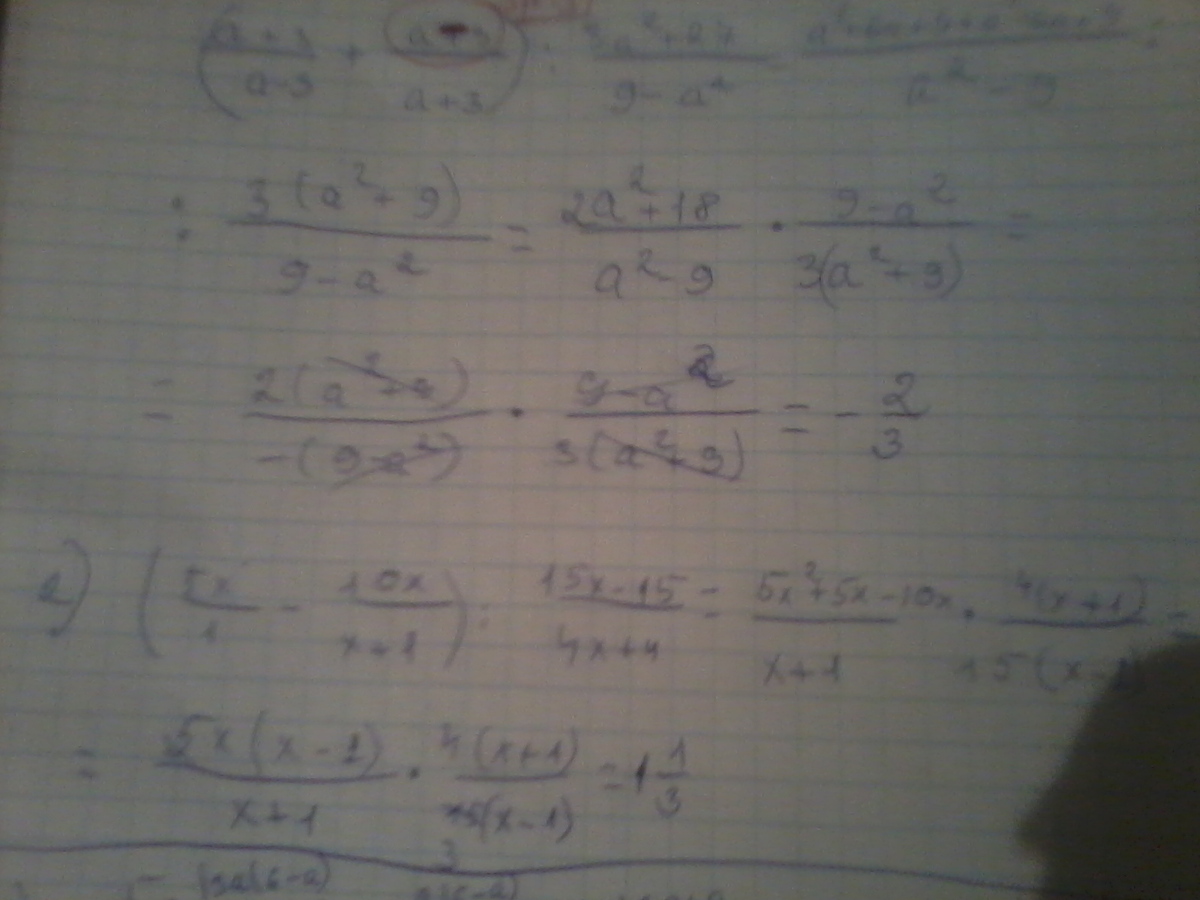 (a+3/a-3 + a-3/a+3) : 3a²+27/9-a² a²+6a+9+a²-6a+9/a²-9 :
: 3(a²+9)/9-a² = 2a²+18/a²-9 · 9-a²/3(a²+9) =
= 2(a²+9)/-(9-a²) · 9-a²/3(a²+9) = -2/3
2) (5x/1 - 10x/x+1) : 15x-15/4x+4 = 5x²+5x-10x/x+1 · 4(x+1)/15(x-1) =
= 5x(x-1)/x+1 · 4(x+1)/15(x-1) = 1 1/3
3